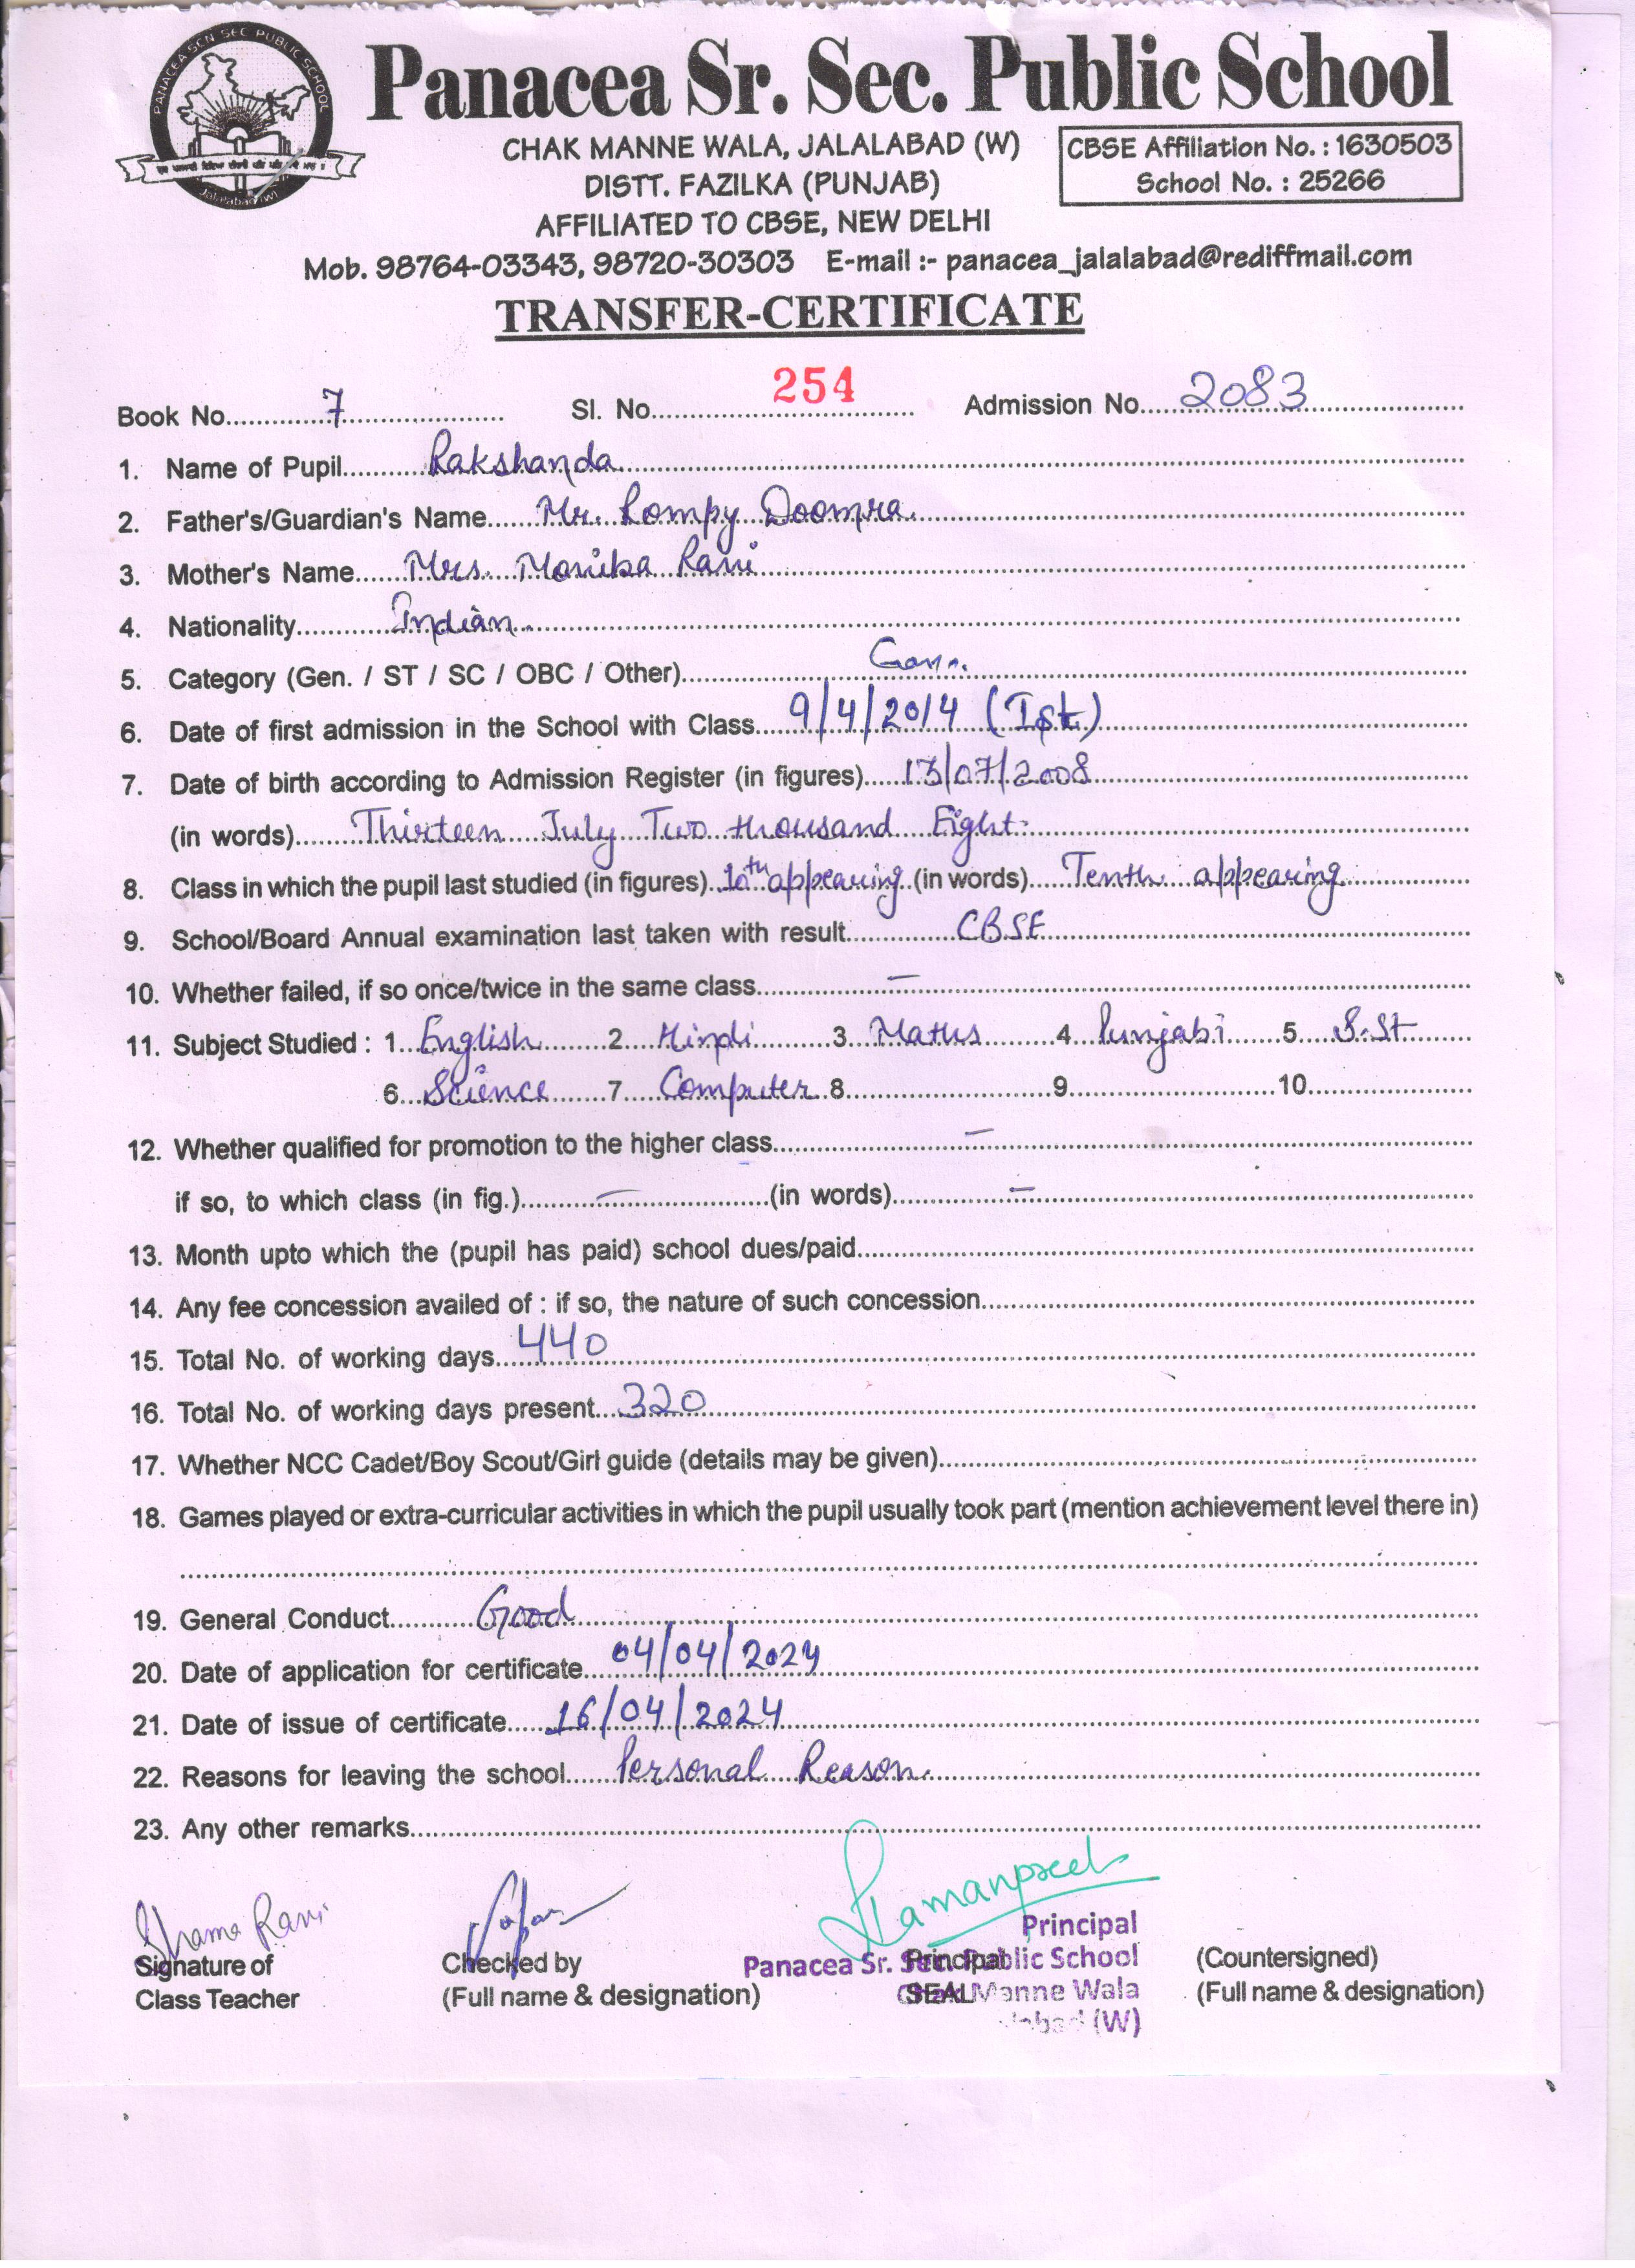 PANACEA SCN SEC PUBLIC SCHOOL
Jalalabad (W)
Panacea Sr. Sec. Public School
CHAK MANNE WALA, JALALABAD (W)
DISTT. FAZILKA (PUNJAB)
AFFILIATED TO CBSE, NEW DELHI
CBSE Affiliation No. : 1630503
School No. : 25266
Mob. 98764-03343, 98720-30303 E-mail :- panacea_jalalabad@rediffmail.com
TRANSFER-CERTIFICATE
Book No. 7 Sl. No. 254 Admission No. 2083
1. Name of Pupil Rakshanda
2. Father's/Guardian's Name Mr. Rompy Doomra
3. Mother's Name Mrs. Monika Rani
4. Nationality Indian
5. Category (Gen. / ST / SC / OBC / Other)
6. Date of first admission in the School with Class 9/4/2014 (Ist)
7. Date of birth according to Admission Register (in figures) 13/07/2008
(in words) Thirteen July Two thousand Eight
8. Class in which the pupil last studied (in figures) 10th appearing (in words) Tenth appearing
9. School/Board Annual examination last taken with result CBSE
10. Whether failed, if so once/twice in the same class —
11. Subject Studied : 1 English 2 Hindi 3 Maths 4 Punjabi 5 S.St
6 Science 7 Computer 8 9 10
12. Whether qualified for promotion to the higher class —
if so, to which class (in fig.) — (in words) —
13. Month upto which the (pupil has paid) school dues/paid
14. Any fee concession availed of : if so, the nature of such concession
15. Total No. of working days 440
16. Total No. of working days present 320
17. Whether NCC Cadet/Boy Scout/Girl guide (details may be given)
18. Games played or extra-curricular activities in which the pupil usually took part (mention achievement level there in)
19. General Conduct Good
20. Date of application for certificate 04/04/2024
21. Date of issue of certificate 16/04/2024
22. Reasons for leaving the school Personal Reason
23. Any other remarks
Shama Rani
Signature of
Class Teacher
Checked by
(Full name & designation)
Ramanpreet
Principal
Panacea Sr. Sec. Public School
Principal
SEAL
Manne Wala
(W)
(Countersigned)
(Full name & designation)